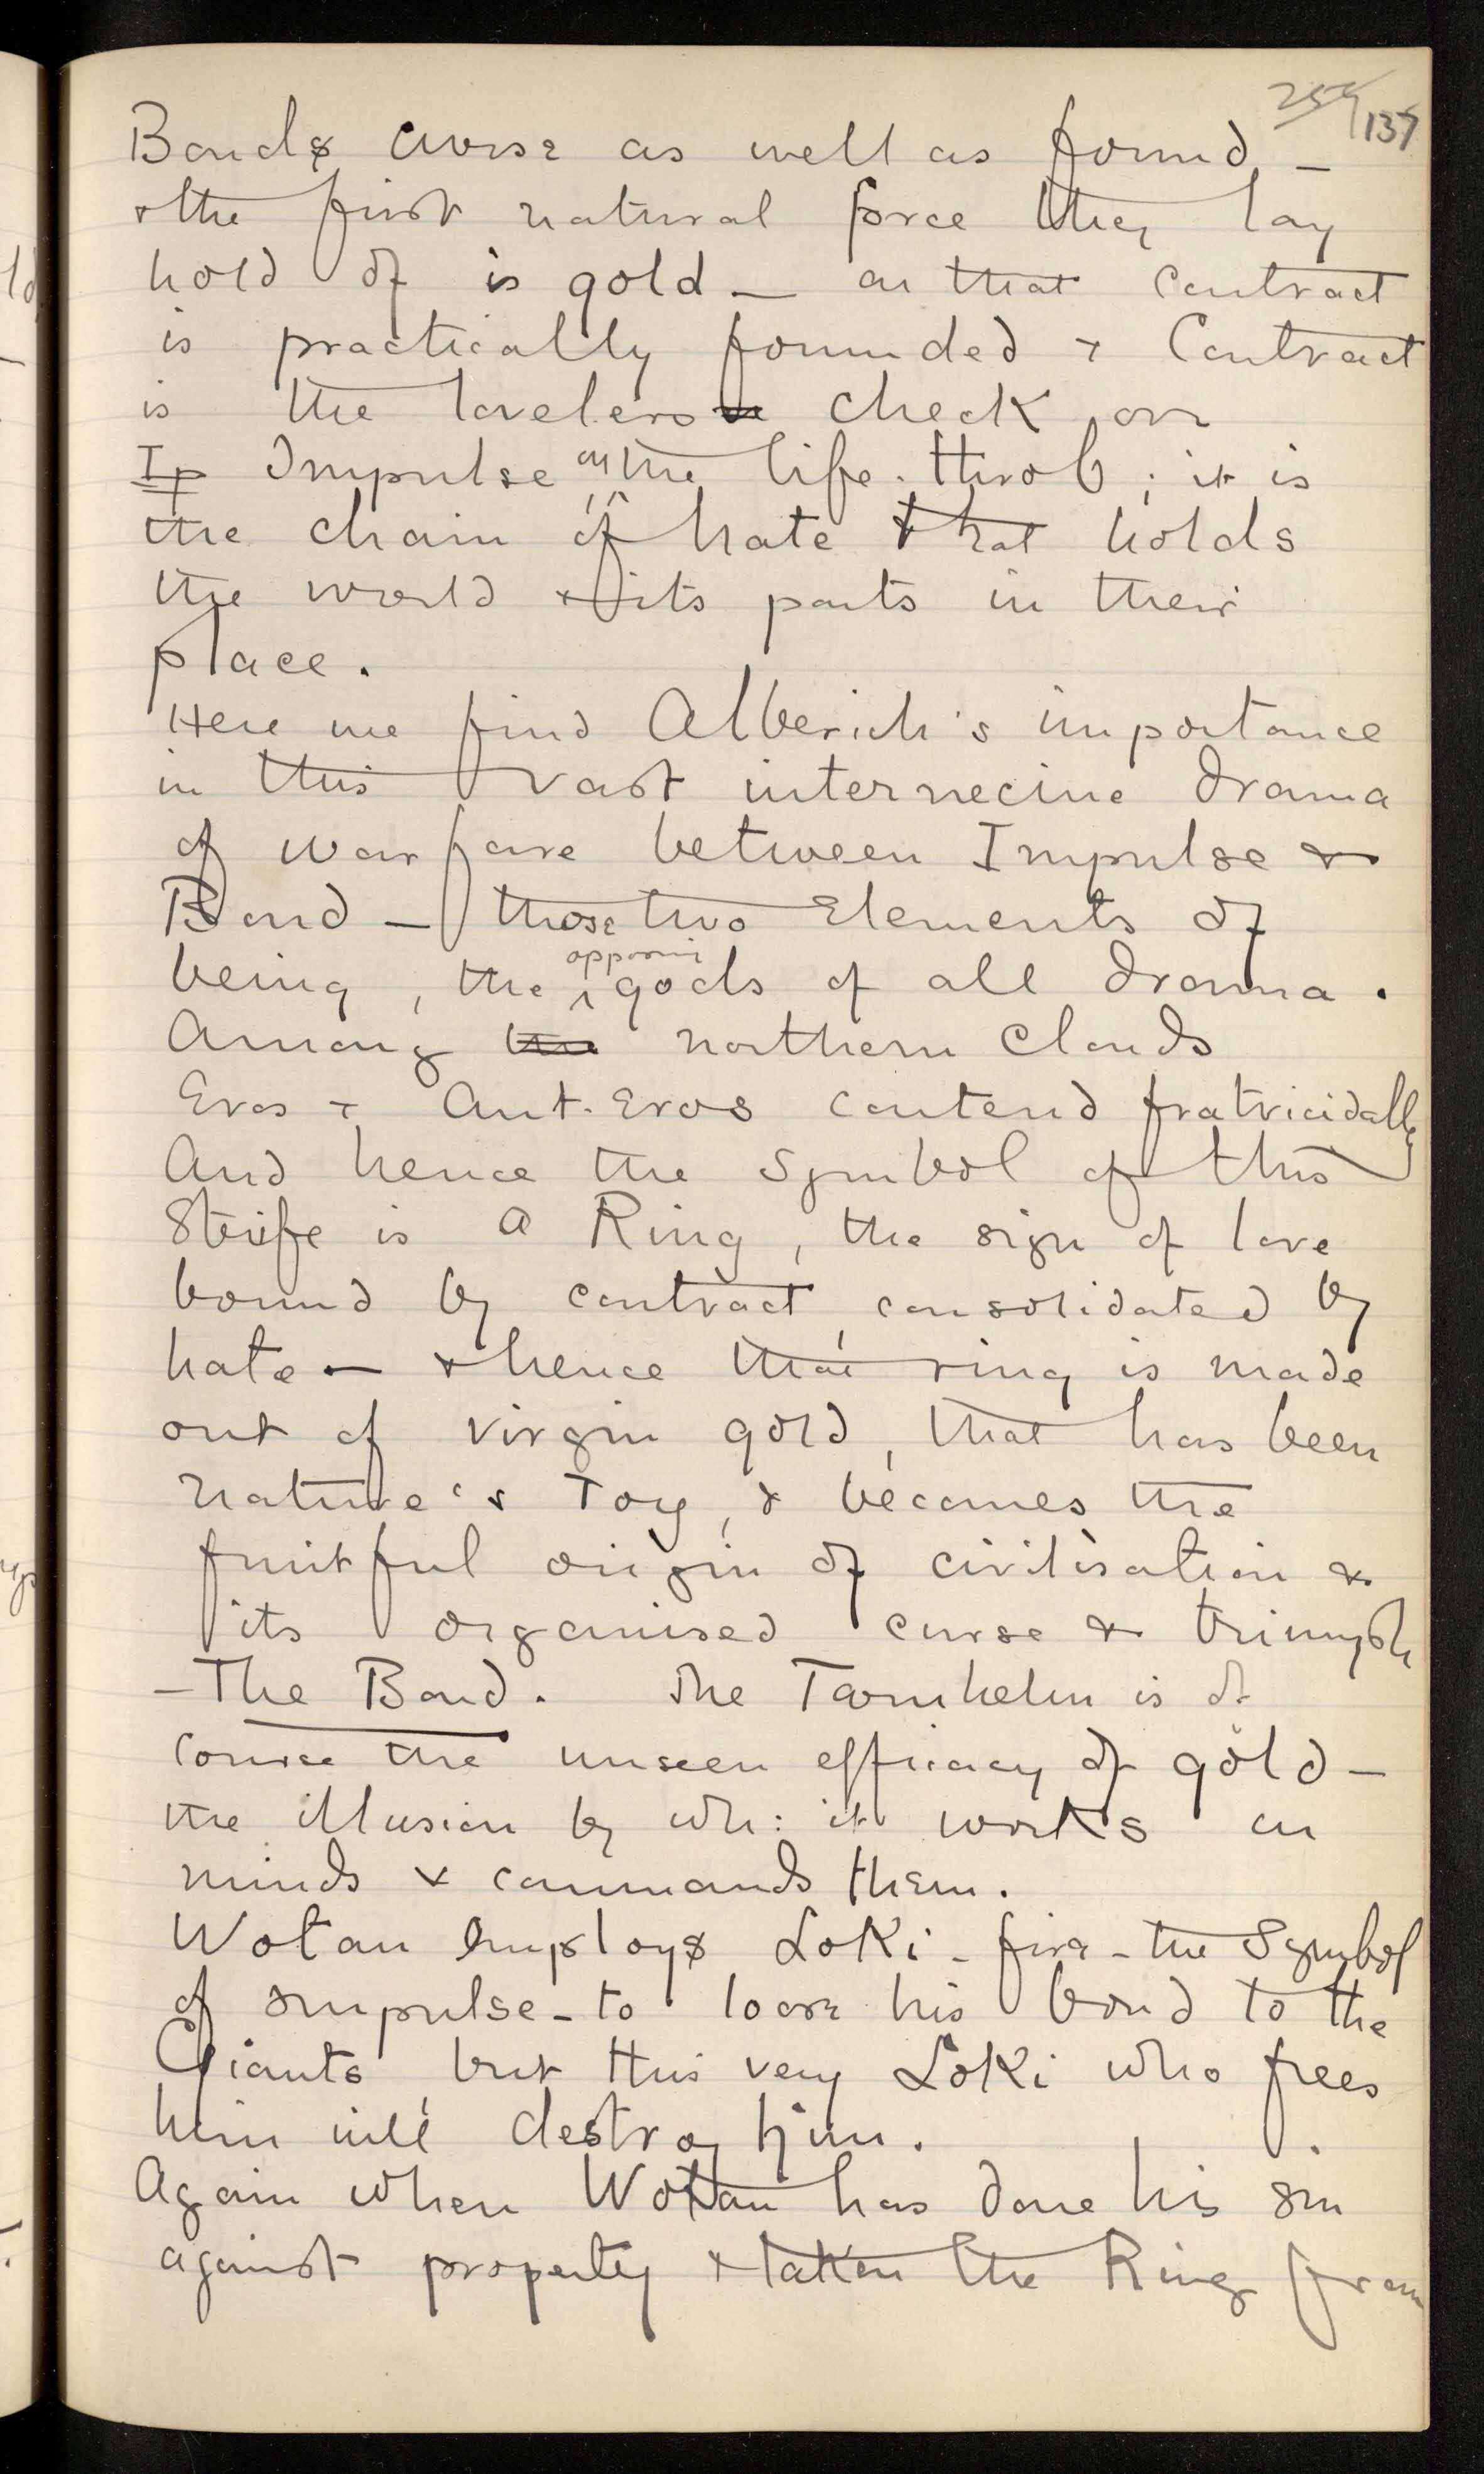 259 137
Bonds curse as well as found –
& the first natural force they lay
hold of is gold – on that contract
is practically founded & Contract
is the loveless check on
Ip Impulse on the life-throb; it is
the chain of hate that holds
the world & its parts in their
place.
Here we find Alberich's importance
in this vast internecine drama
of warfare between Impulse &
Bond – those two Elements of
being, the opposing gods of all drama.
Among the northern clouds
Eros & Ant-Eros contend fratricidally
And hence the symbol of this
Strife is a Ring, the sign of love
bound by contract, consolidated by
hate – & hence that ring is made
out of virgin gold, that has been
nature's Toy, & becomes the
fruitful origin of civilisation &
its organised curse & triumph
– The Bond. The Tarnhelm is of
course the unseen efficacy of gold –
the illusion by wh: it works on
minds & commands them.
Wotan employs Loki – fire – the Symbol
of impulse – to loose his bond to the
Giants, but this very Loki who frees
him will destroy him.
Again when Wotan has done his sin
against property & taken the Ring from